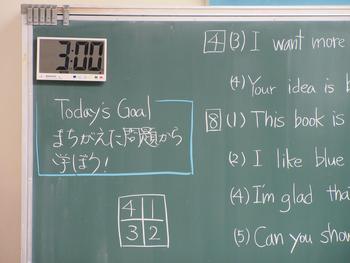 3:00
Today's Goal
まちがえた問題から
学ぼう!
4 1
3 2
4 (3) I want more
(4) Your idea is
8 (1) This book is
(2) I like blue
(4) I'm glad
(5) Can you